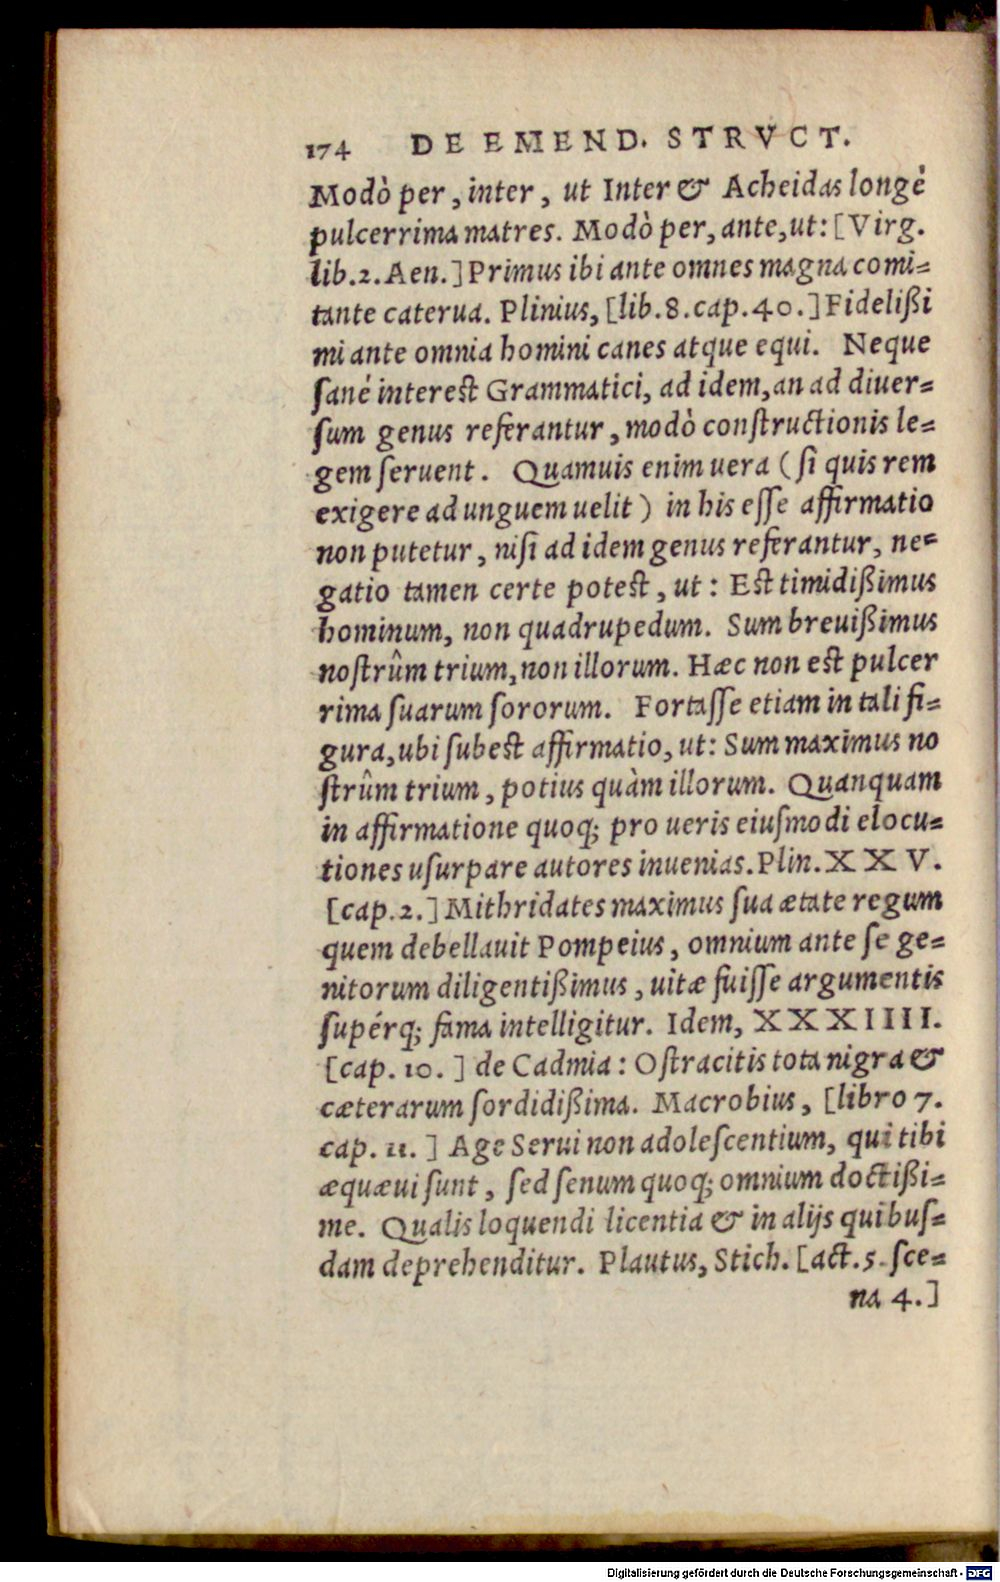 174 DE EMEND. STRVCT.
Modò per, inter, ut Inter & Acheidas longè
pulcerrima matres. Modò per, ante, ut: [Virg.
lib. 2. Aen.] Primus ibi ante omnes magna comi=
tante caterua. Plinius, [lib. 8. cap. 40.] Fidelißi
mi ante omnia homini canes atque equi. Neque
ſanè intereſt Grammatici, ad idem, an ad diuer=
ſum genus referantur, modò conſtructionis le=
gem ſeruent. Quamuis enim uera (ſi quis rem
exigere ad unguem uelit) in his eſſe affirmatio
non putetur, niſi ad idem genus referantur, ne=
gatio tamen certe poteſt, ut: Eſt timidißimus
hominum, non quadrupedum. Sum breuißimus
noſtrûm trium, non illorum. Hæc non eſt pulcer
rima ſuarum ſororum. Fortaſſe etiam in tali fi=
gura, ubi ſubeſt affirmatio, ut: Sum maximus no
ſtrûm trium, potius quàm illorum. Quanquam
in affirmatione quoq; pro ueris eiuſmodi elocu=
tiones uſurpare autores inuenias. Plin. XXV.
[cap. 2.] Mithridates maximus ſua ætate regum
quem debellauit Pompeius, omnium ante ſe ge=
nitorum diligentißimus, uitæ fuiſſe argumentis
ſupérq; fama intelligitur. Idem, XXXIIII.
[cap. 10.] de Cadmia: Oſtracitis tota nigra &
cæterarum ſordidißima. Macrobius, [libro 7.
cap. 11.] Age Serui non adoleſcentium, qui tibi
æquæui ſunt, ſed ſenum quoq; omnium doctißi=
me. Qualis loquendi licentia & in alijs quibuſ=
dam deprehenditur. Plautus, Stich. [act. 5. ſce=
na 4.]
Digitalisierung gefördert durch die Deutsche Forschungsgemeinschaft - DFG